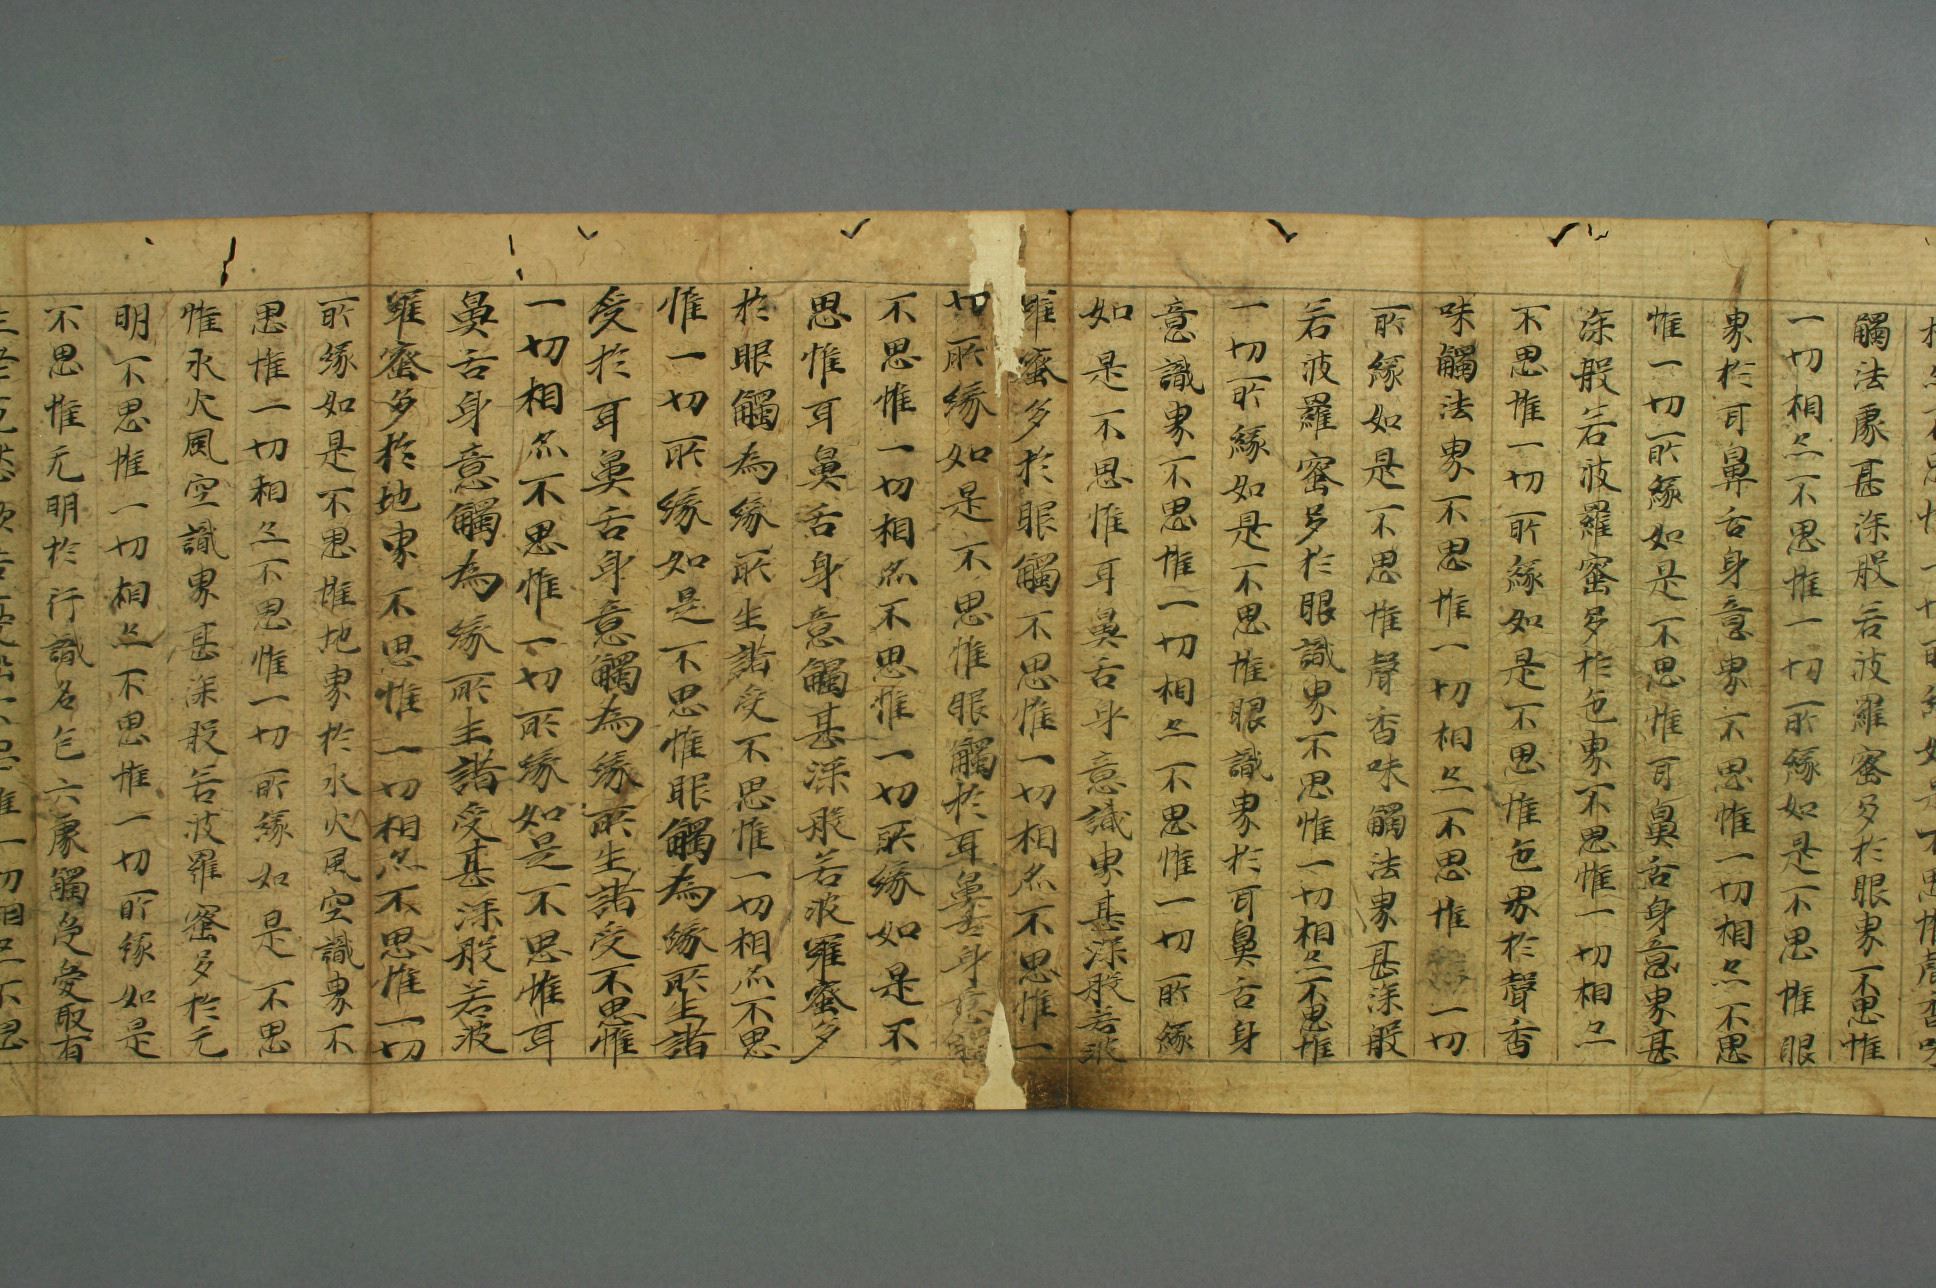 相亦不思惟一切所緣如是不思惟聲香味
觸法處甚深般若波羅蜜多於眼界不思惟
一切相亦不思惟一切所緣如是不思惟眼
界於耳鼻舌身意界不思惟一切相亦不思
惟一切所緣如是不思惟耳鼻舌身意界甚
深般若波羅蜜多於色界不思惟一切相亦
不思惟一切所緣如是不思惟色界於聲香
味觸法界不思惟一切相亦不思惟一切
所緣如是不思惟聲香味觸法界甚深般
若波羅蜜多於眼識界不思惟一切相亦不思惟
一切所緣如是不思惟眼識界於耳鼻舌身
意識界不思惟一切相亦不思惟一切所緣
如是不思惟耳鼻舌身意識界甚深般若波
羅蜜多於眼觸不思惟一切相亦不思惟一
切所緣如是不思惟眼觸於耳鼻舌身意觸
不思惟一切相亦不思惟一切所緣如是不
思惟耳鼻舌身意觸甚深般若波羅蜜多
於眼觸為緣所生諸受不思惟一切相亦不思
惟一切所緣如是不思惟眼觸為緣所生諸
受於耳鼻舌身意觸為緣所生諸受不思惟
一切相亦不思惟一切所緣如是不思惟耳
鼻舌身意觸為緣所生諸受甚深般若波
羅蜜多於地界不思惟一切相亦不思惟一切
所緣如是不思惟地界於水火風空識界不
思惟一切相亦不思惟一切所緣如是不思
惟水火風空識界甚深般若波羅蜜多於无
明不思惟一切相亦不思惟一切所緣如是
不思惟无明於行識名色六處觸受愛取有
生老死愁歎苦憂惱不思惟一切相亦不思